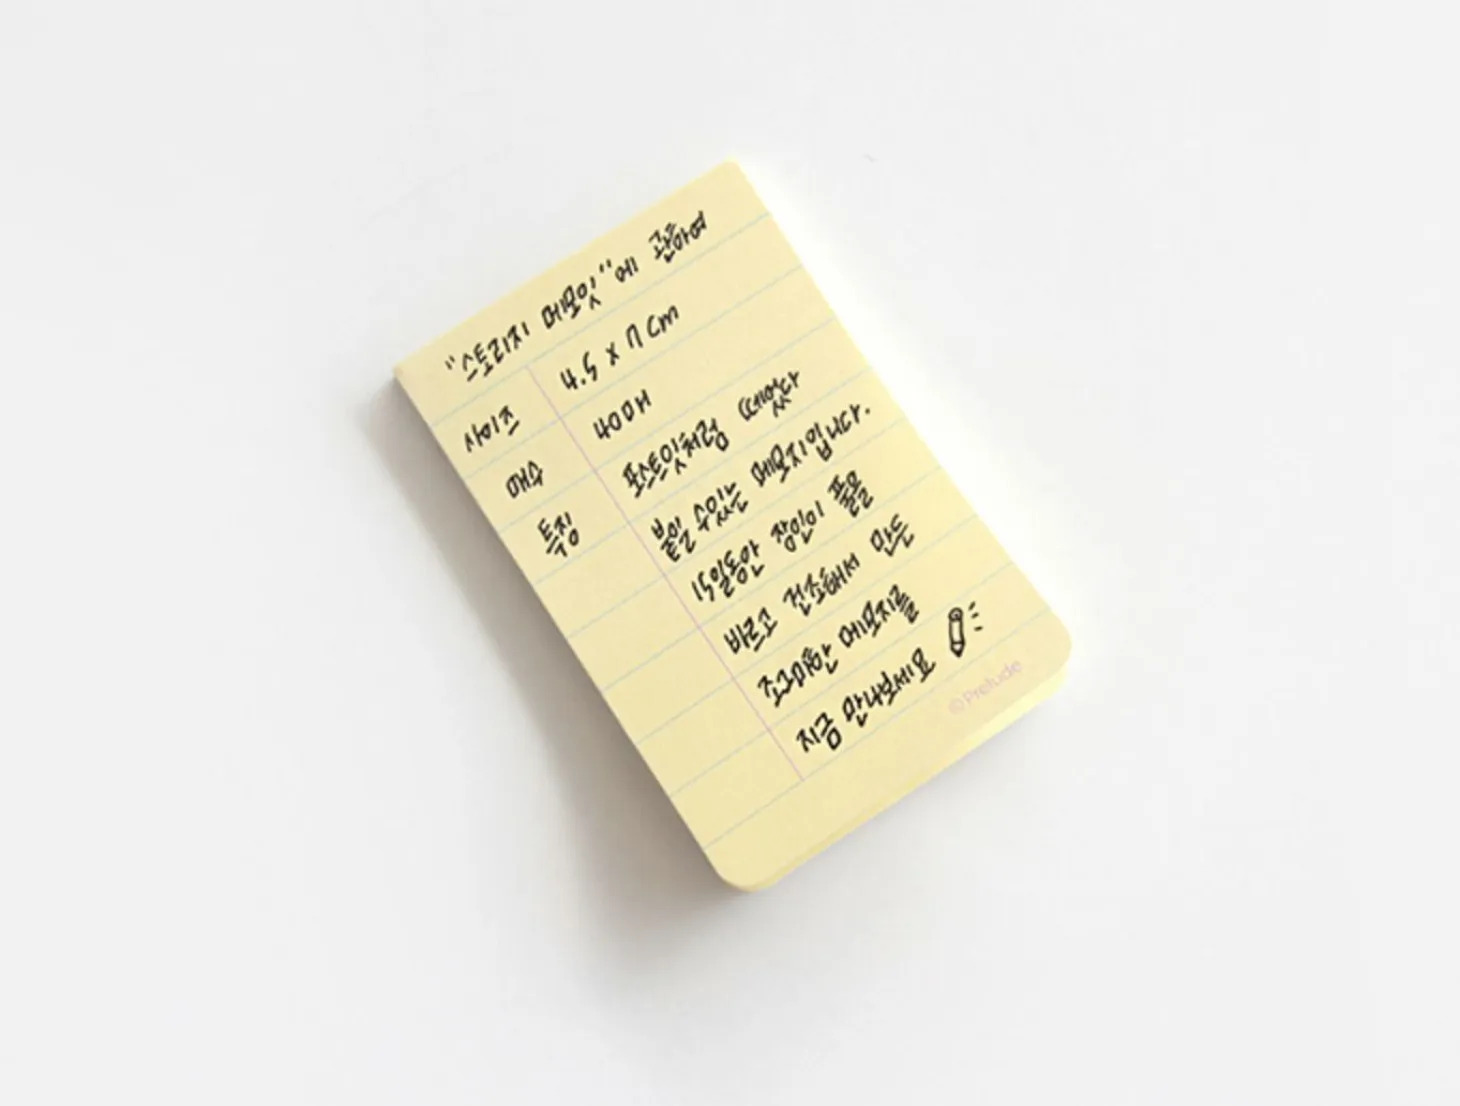 "스토리지 메모잇"에 관하여
사이즈 4.5 x 7 cm
매수 40매
특징 포스트잇처럼 떼었다
붙일 수있는 메모지입니다.
15일동안 장인이 풀을
바르고 건조해서 만든
조그마한 메모지를
지금 만나보세요
©Prelude